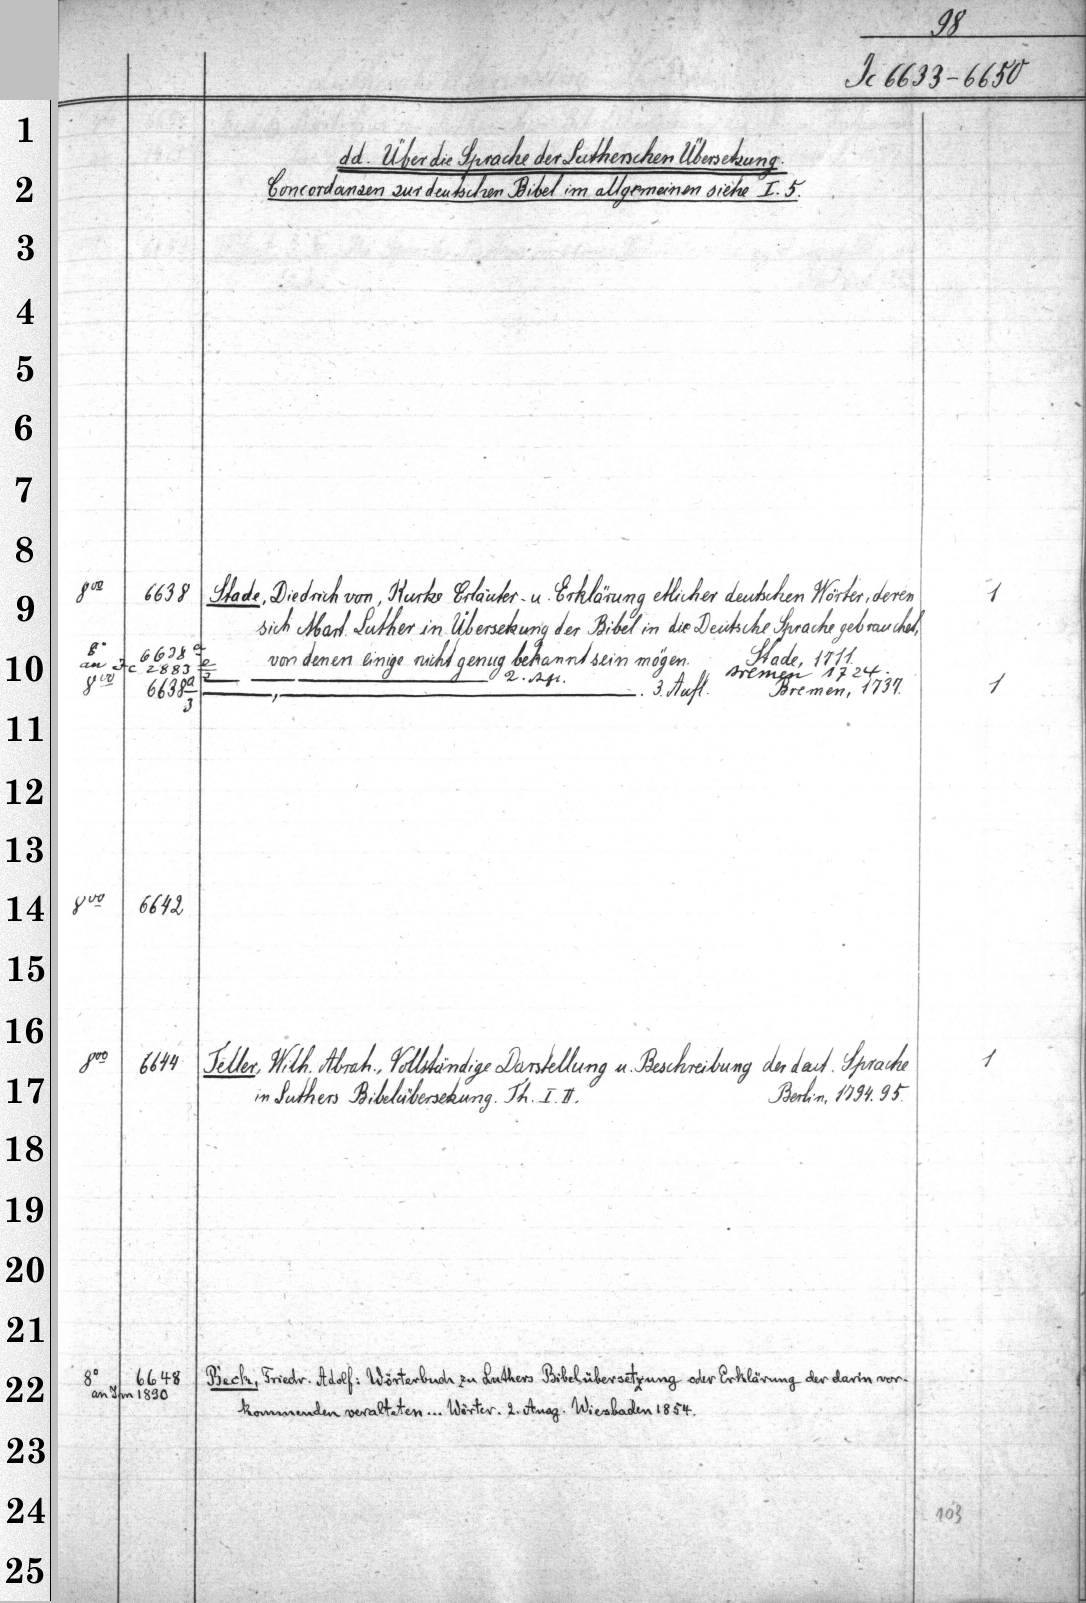 98
Jc 6633-6650
1
dd. Über die Sprache der Lutherschen Übersetzung.
2
Concordanzen zur deutschen Bibel im allgemeinen siehe I. 5.
3
4
5
6
7
8
8vo 6638 Stade, Diedrich von, Kurtze Erläuter- u. Erklärung etlicher deutschen Wörter, deren 1
9
sich Mart. Luther in Übersetzung der Bibel in die Deutsche Sprache gebrauchet,
8° 6638 a/2 von denen einige nicht genug bekannt sein mögen. Stade, 1711.
10
an Jc 2883 2. Afl. Bremen 1724.
8vo 6638 a/3 , . 3. Aufl. Bremen, 1737. 1
11
12
13
14
8vo 6642
15
16
8vo 6644 Teller, Wilh. Abrah., Vollständige Darstellung u. Beschreibung der deut. Sprache 1
17
in Luthers Bibelübersetzung. Th. I. II. Berlin, 1794. 95.
18
19
20
21
8° 6648 Beck, Friedr. Adolf: Wörterbuch zu Luthers Bibelübersetzung oder Erklärung der darin vor-
22
an Jm 1890
kommenden veralteten... Wörter. 2. Ausg. Wiesbaden 1854.
23
24
103
25